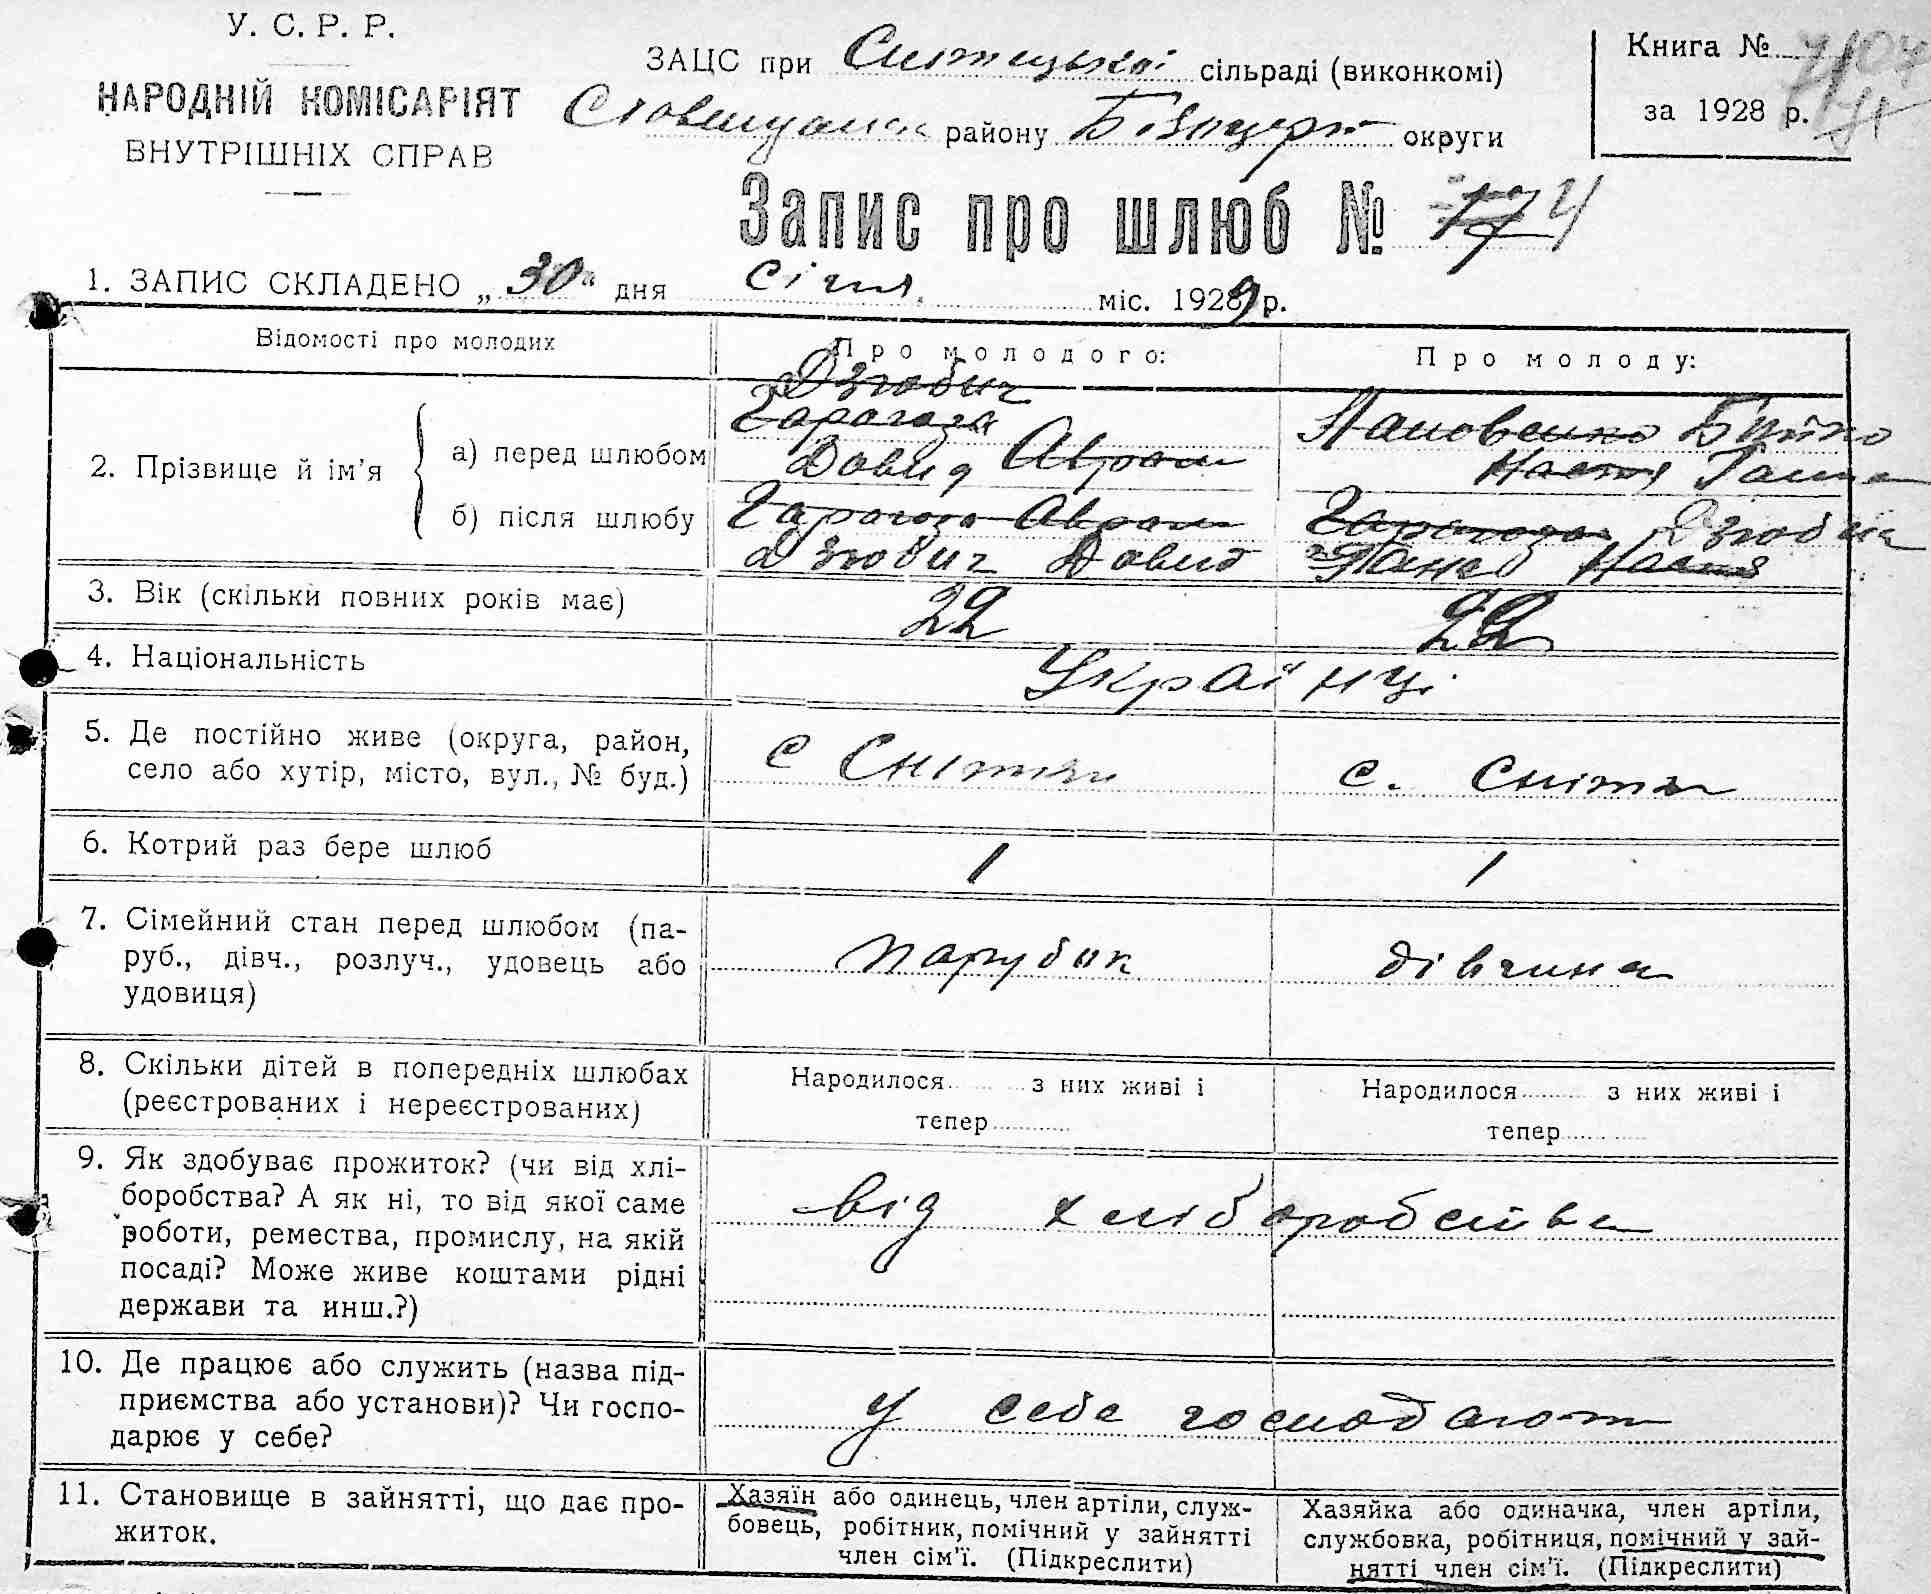 У. С. Р. Р.
НАРОДНІЙ КОМІСАРІЯТ
ВНУТРІШНІХ СПРАВ
ЗАЦС при сільраді (виконкомі)
району Білоцерк округи
Книга №
за 1928 р.
Запис про шлюб № 4
1. ЗАПИС СКЛАДЕНО „30“ дня січня міс. 1929 р.
Відомості про молодих
Про молодого:
Про молоду:
2. Прізвище й ім’я
а) перед шлюбом
Дзюбич
Гарагоза
Довид Аврам
Пановенко Бойко
Настя Ганна
б) після шлюбу
Гарагоза Аврам
Дзюбич Довид
Гарагоза Дзюбич
Настя
3. Вік (скільки повних років має)
22
22
4. Національність
Українці
5. Де постійно живе (округа, район,
село або хутір, місто, вул., № буд.)
с Сніжки
с.
6. Котрий раз бере шлюб
1
1
7. Сімейний стан перед шлюбом (па-
руб., дівч., розлуч., удовець або
удовиця)
парубок
дівчина
8. Скільки дітей в попередніх шлюбах
(реєстрованих і нереєстрованих)
Народилося з них живі і
тепер
Народилося з них живі і
тепер
9. Як здобуває прожиток? (чи від хлі-
боробства? А як ні, то від якої саме
роботи, ремества, промислу, на якій
посаді? Може живе коштами рідні
держави та инш.?)
від хліборобства
10. Де працює або служить (назва під-
приємства або установи)? Чи госпо-
дарює у себе?
у себе господарюють
11. Становище в зайнятті, що дає про-
житок.
Хазяїн або одинець, член артіли, служ-
бовець, робітник, помічний у зайнятті
член сім’ї. (Підкреслити)
Хазяйка або одиначка, член артіли,
службовка, робітниця, помічний у зай-
нятті член сім’ї. (Підкреслити)